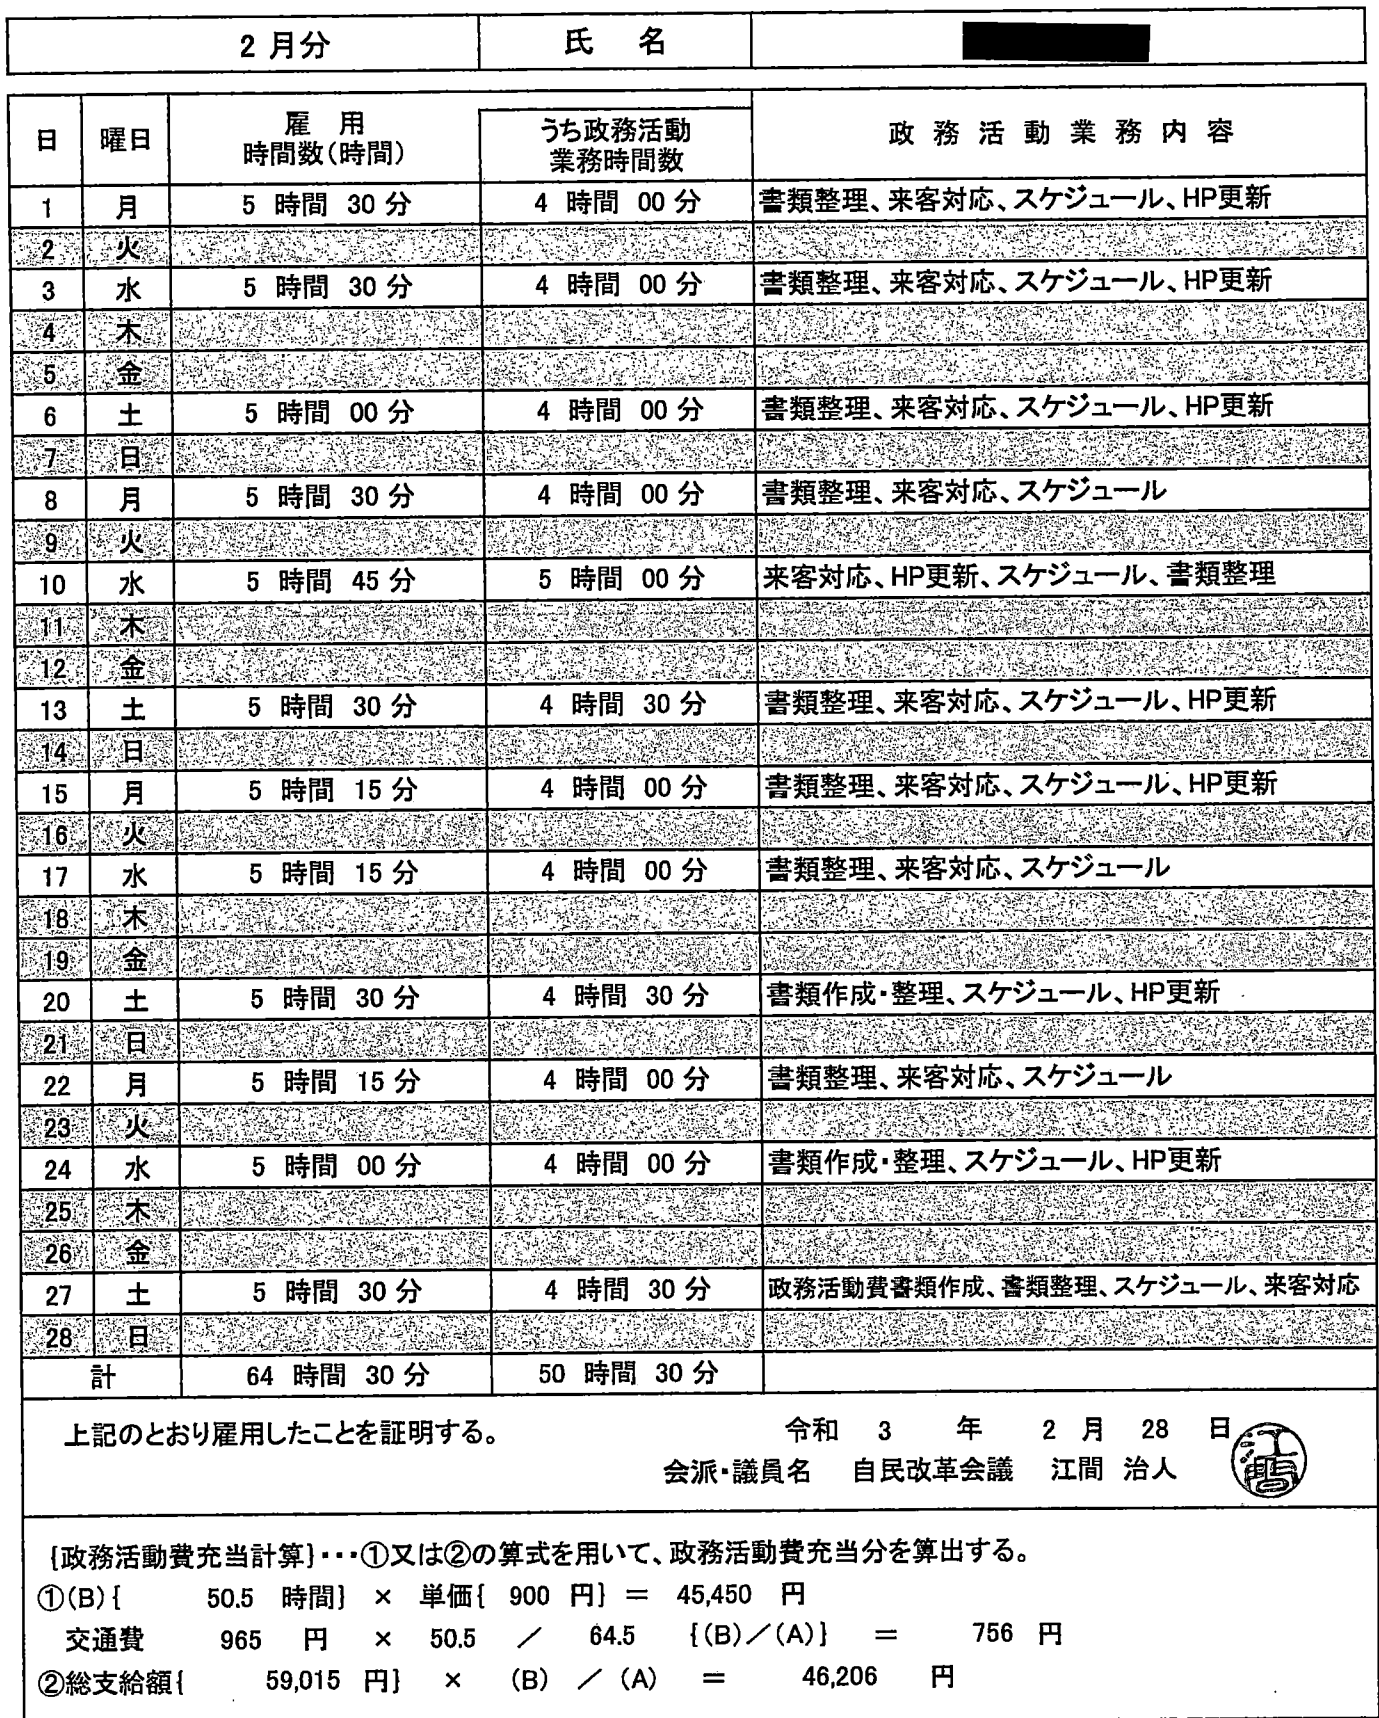 2 月分 氏 名
日 曜日 雇 用 時間数(時間) うち政務活動 業務時間数 政 務 活 動 業 務 内 容
1 月 5 時間 30 分 4 時間 00 分 書類整理、来客対応、スケジュール、HP更新
2 火
3 水 5 時間 30 分 4 時間 00 分 書類整理、来客対応、スケジュール、HP更新
4 木
5 金
6 土 5 時間 00 分 4 時間 00 分 書類整理、来客対応、スケジュール、HP更新
7 日
8 月 5 時間 30 分 4 時間 00 分 書類整理、来客対応、スケジュール
9 火
10 水 5 時間 45 分 5 時間 00 分 来客対応、HP更新、スケジュール、書類整理
11 木
12 金
13 土 5 時間 30 分 4 時間 30 分 書類整理、来客対応、スケジュール、HP更新
14 日
15 月 5 時間 15 分 4 時間 00 分 書類整理、来客対応、スケジュール、HP更新
16 火
17 水 5 時間 15 分 4 時間 00 分 書類整理、来客対応、スケジュール
18 木
19 金
20 土 5 時間 30 分 4 時間 30 分 書類作成・整理、スケジュール、HP更新
21 日
22 月 5 時間 15 分 4 時間 00 分 書類整理、来客対応、スケジュール
23 火
24 水 5 時間 00 分 4 時間 00 分 書類作成・整理、スケジュール、HP更新
25 木
26 金
27 土 5 時間 30 分 4 時間 30 分 政務活動費書類作成、書類整理、スケジュール、来客対応
28 日
計 64 時間 30 分 50 時間 30 分
上記のとおり雇用したことを証明する。 令和 3 年 2 月 28 日
会派・議員名 自民改革会議 江間 治人 江間
{政務活動費充当計算}・・・①又は②の算式を用いて、政務活動費充当分を算出する。
①(B){ 50.5 時間} × 単価{ 900 円} = 45,450 円
交通費 965 円 × 50.5 / 64.5 {(B)/(A)} = 756 円
②総支給額{ 59,015 円} × (B) / (A) = 46,206 円